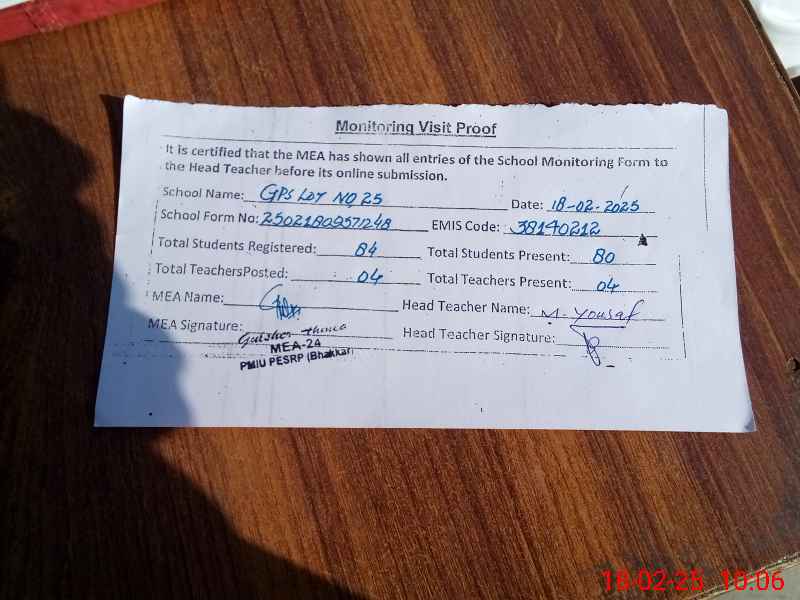 Monitoring Visit Proof
It is certified that the MEA has shown all entries of the School Monitoring Form to
the Head Teacher before its online submission.
School Name: GPS LOT NO, 25 Date: 18-02-2025
School Form No: 2502180957248 EMIS Code: 38140212
Total Students Registered: 84 Total Students Present: 80
Total TeachersPosted: 04 Total Teachers Present: 04
MEA Name: Head Teacher Name: M. Yousaf
MEA Signature: Head Teacher Signature:
MEA-24
PMIU PESRP (Bhakkar)
18-02-25 10:06